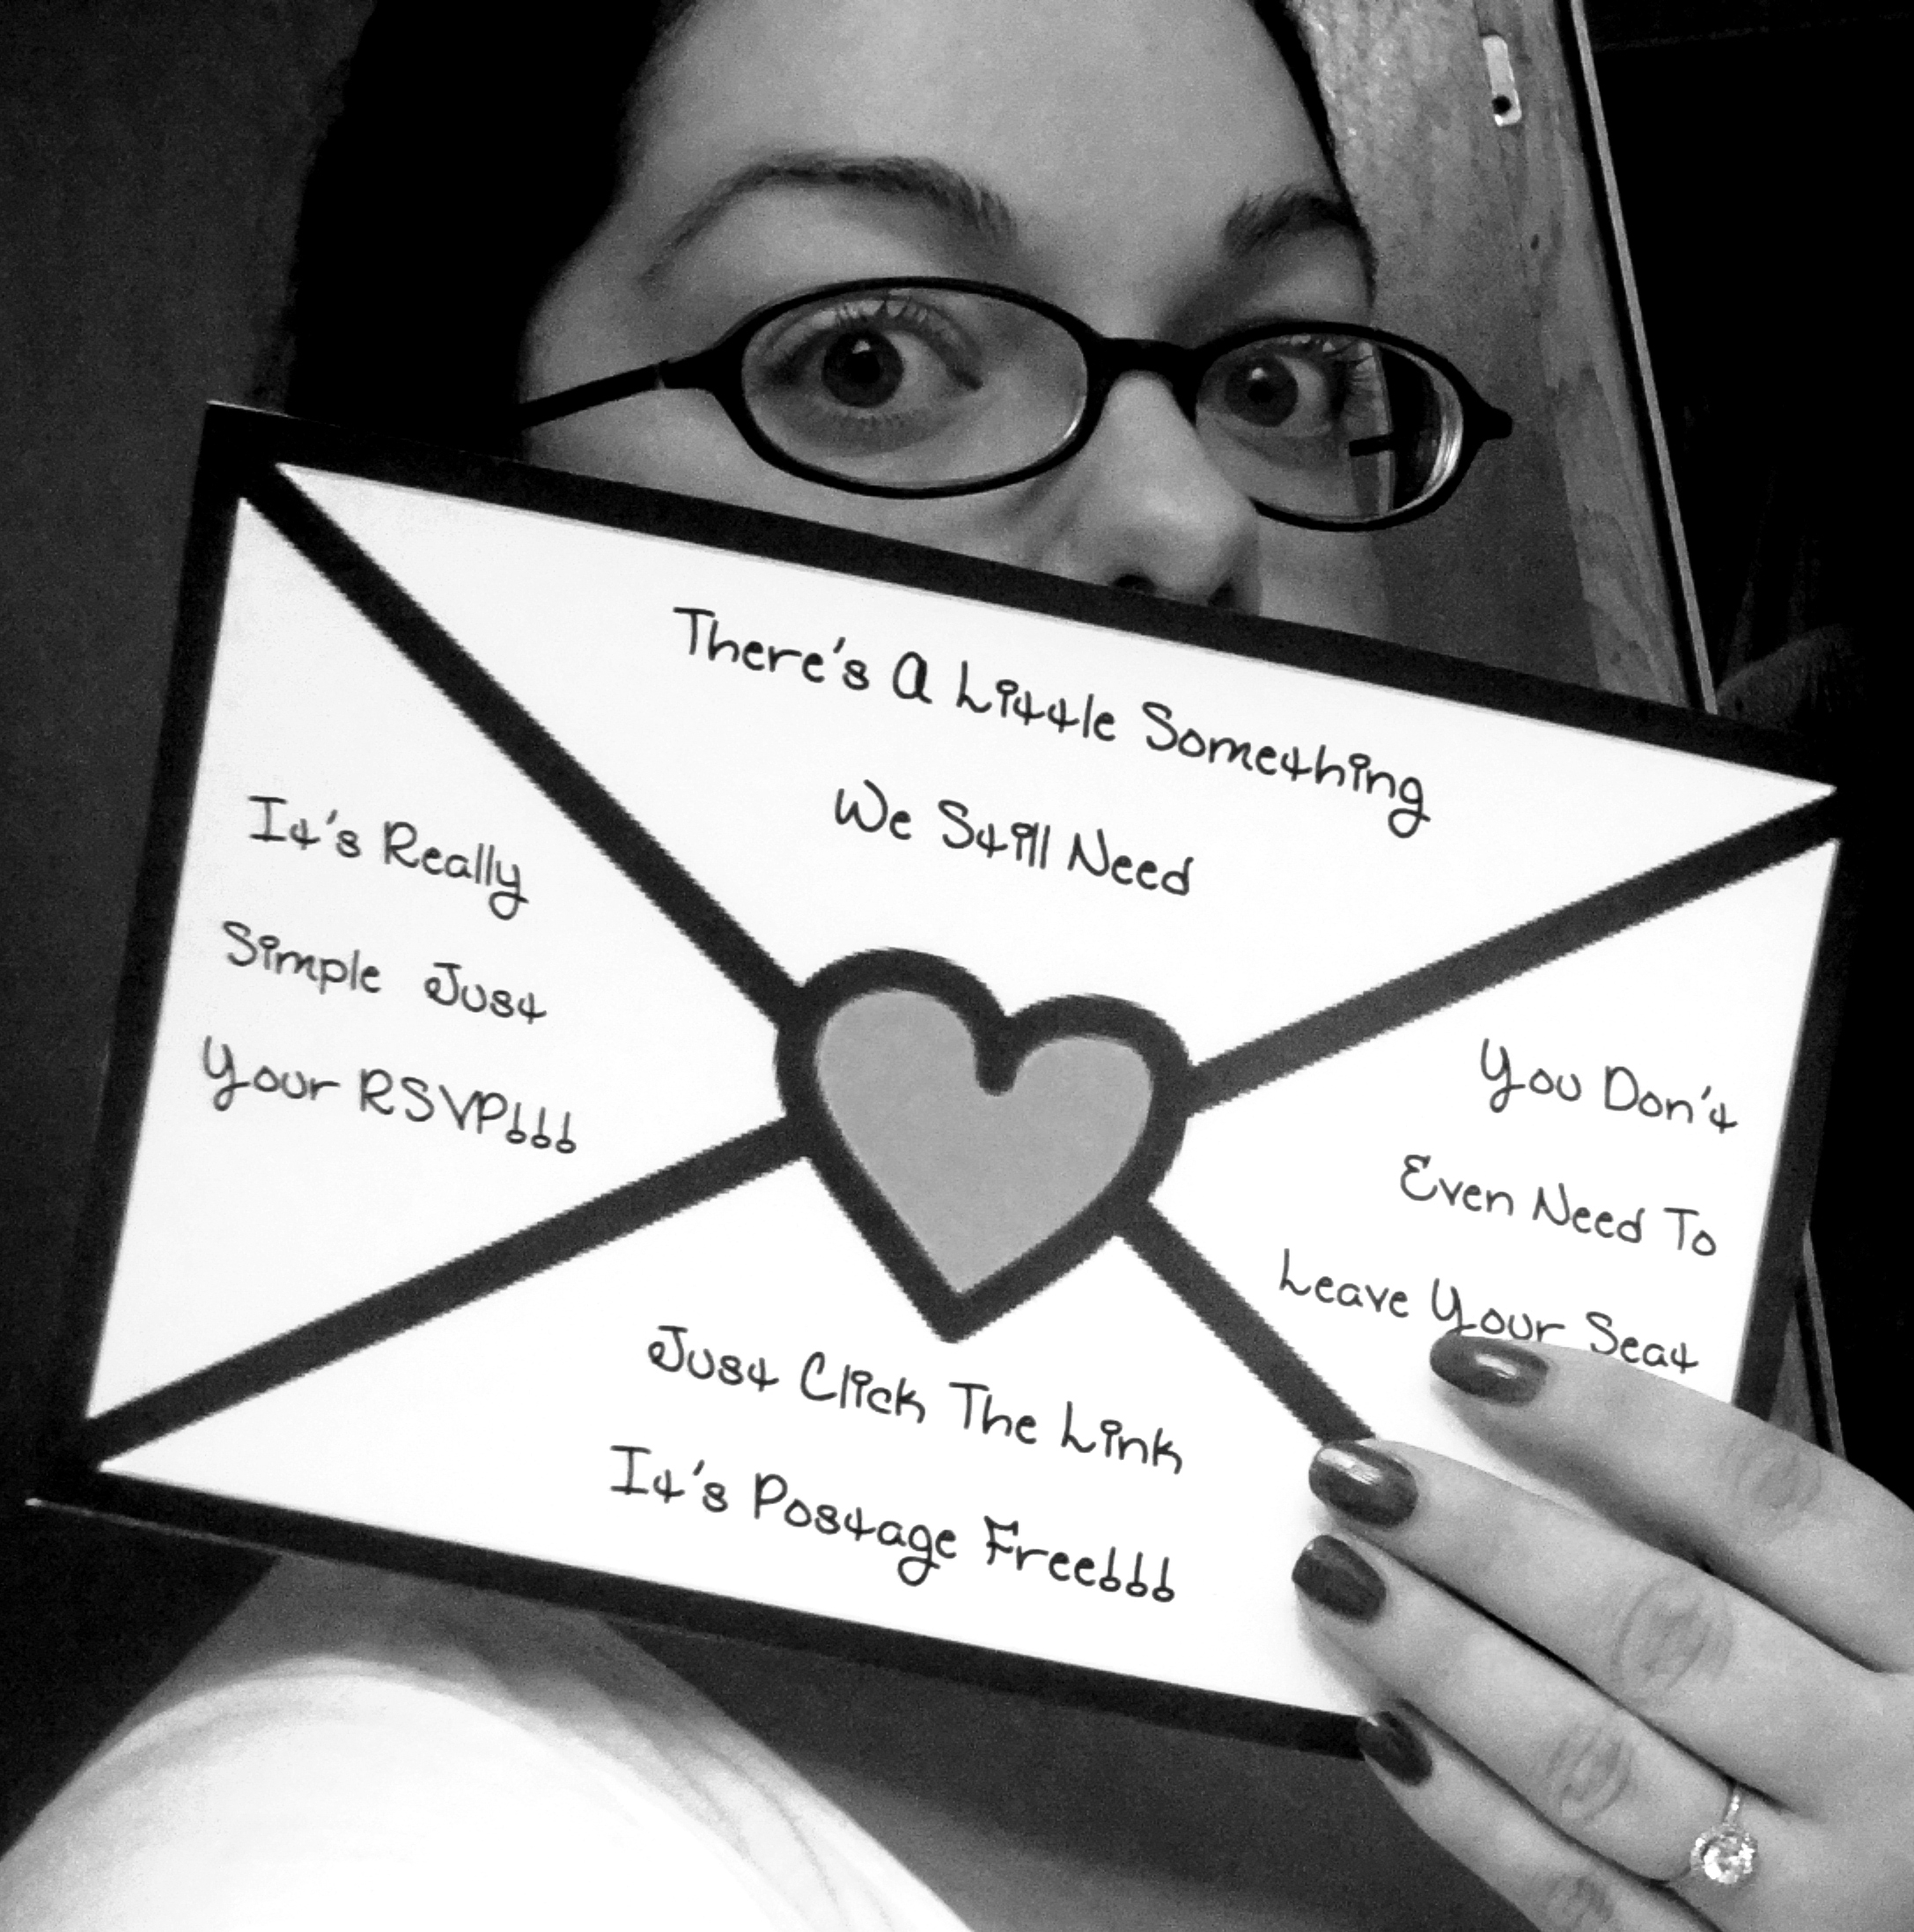 There's A Little Something
We Still Need
It's Really
Simple Just
Your RSVP!!!
You Don't
Even Need To
Leave Your Seat
Just Click The Link
It's Postage Free!!!